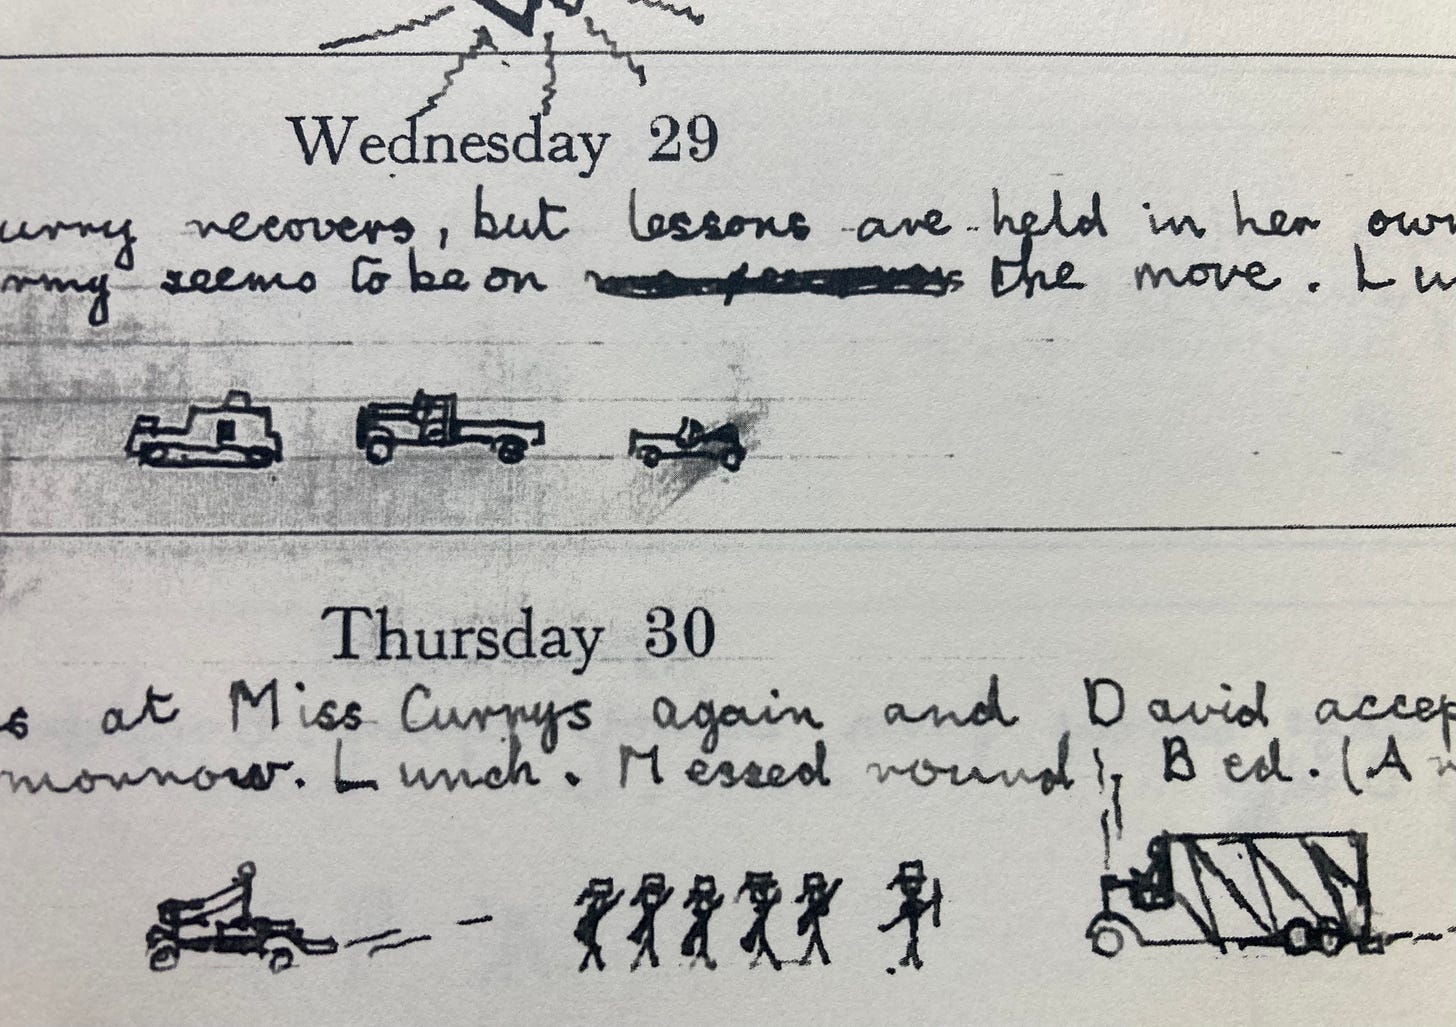 Wednesday 29
urry recovers, but lessons are held in her own
rmy seems to be on the move. Lu
Thursday 30
s at Miss Currys again and David accep
morrow. Lunch. Messed round. Bed. (A